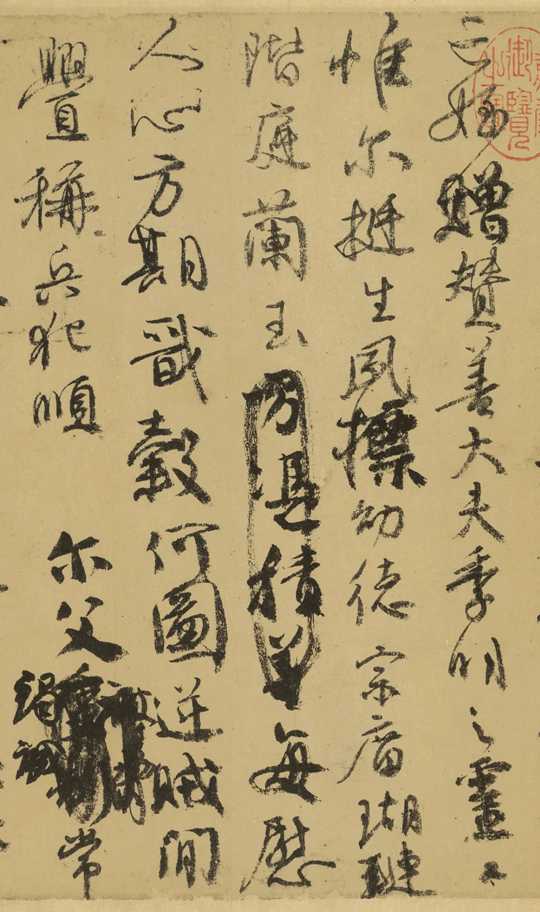 亡姪贈贊善大夫季明之靈曰
惟尔挺生夙標幼德宗庿瑚璉
階庭蘭玉方憑積善每慰
人心方期戩穀何圖逆賊閒
釁稱兵犯順 尔父竭誠常
御覽之寶